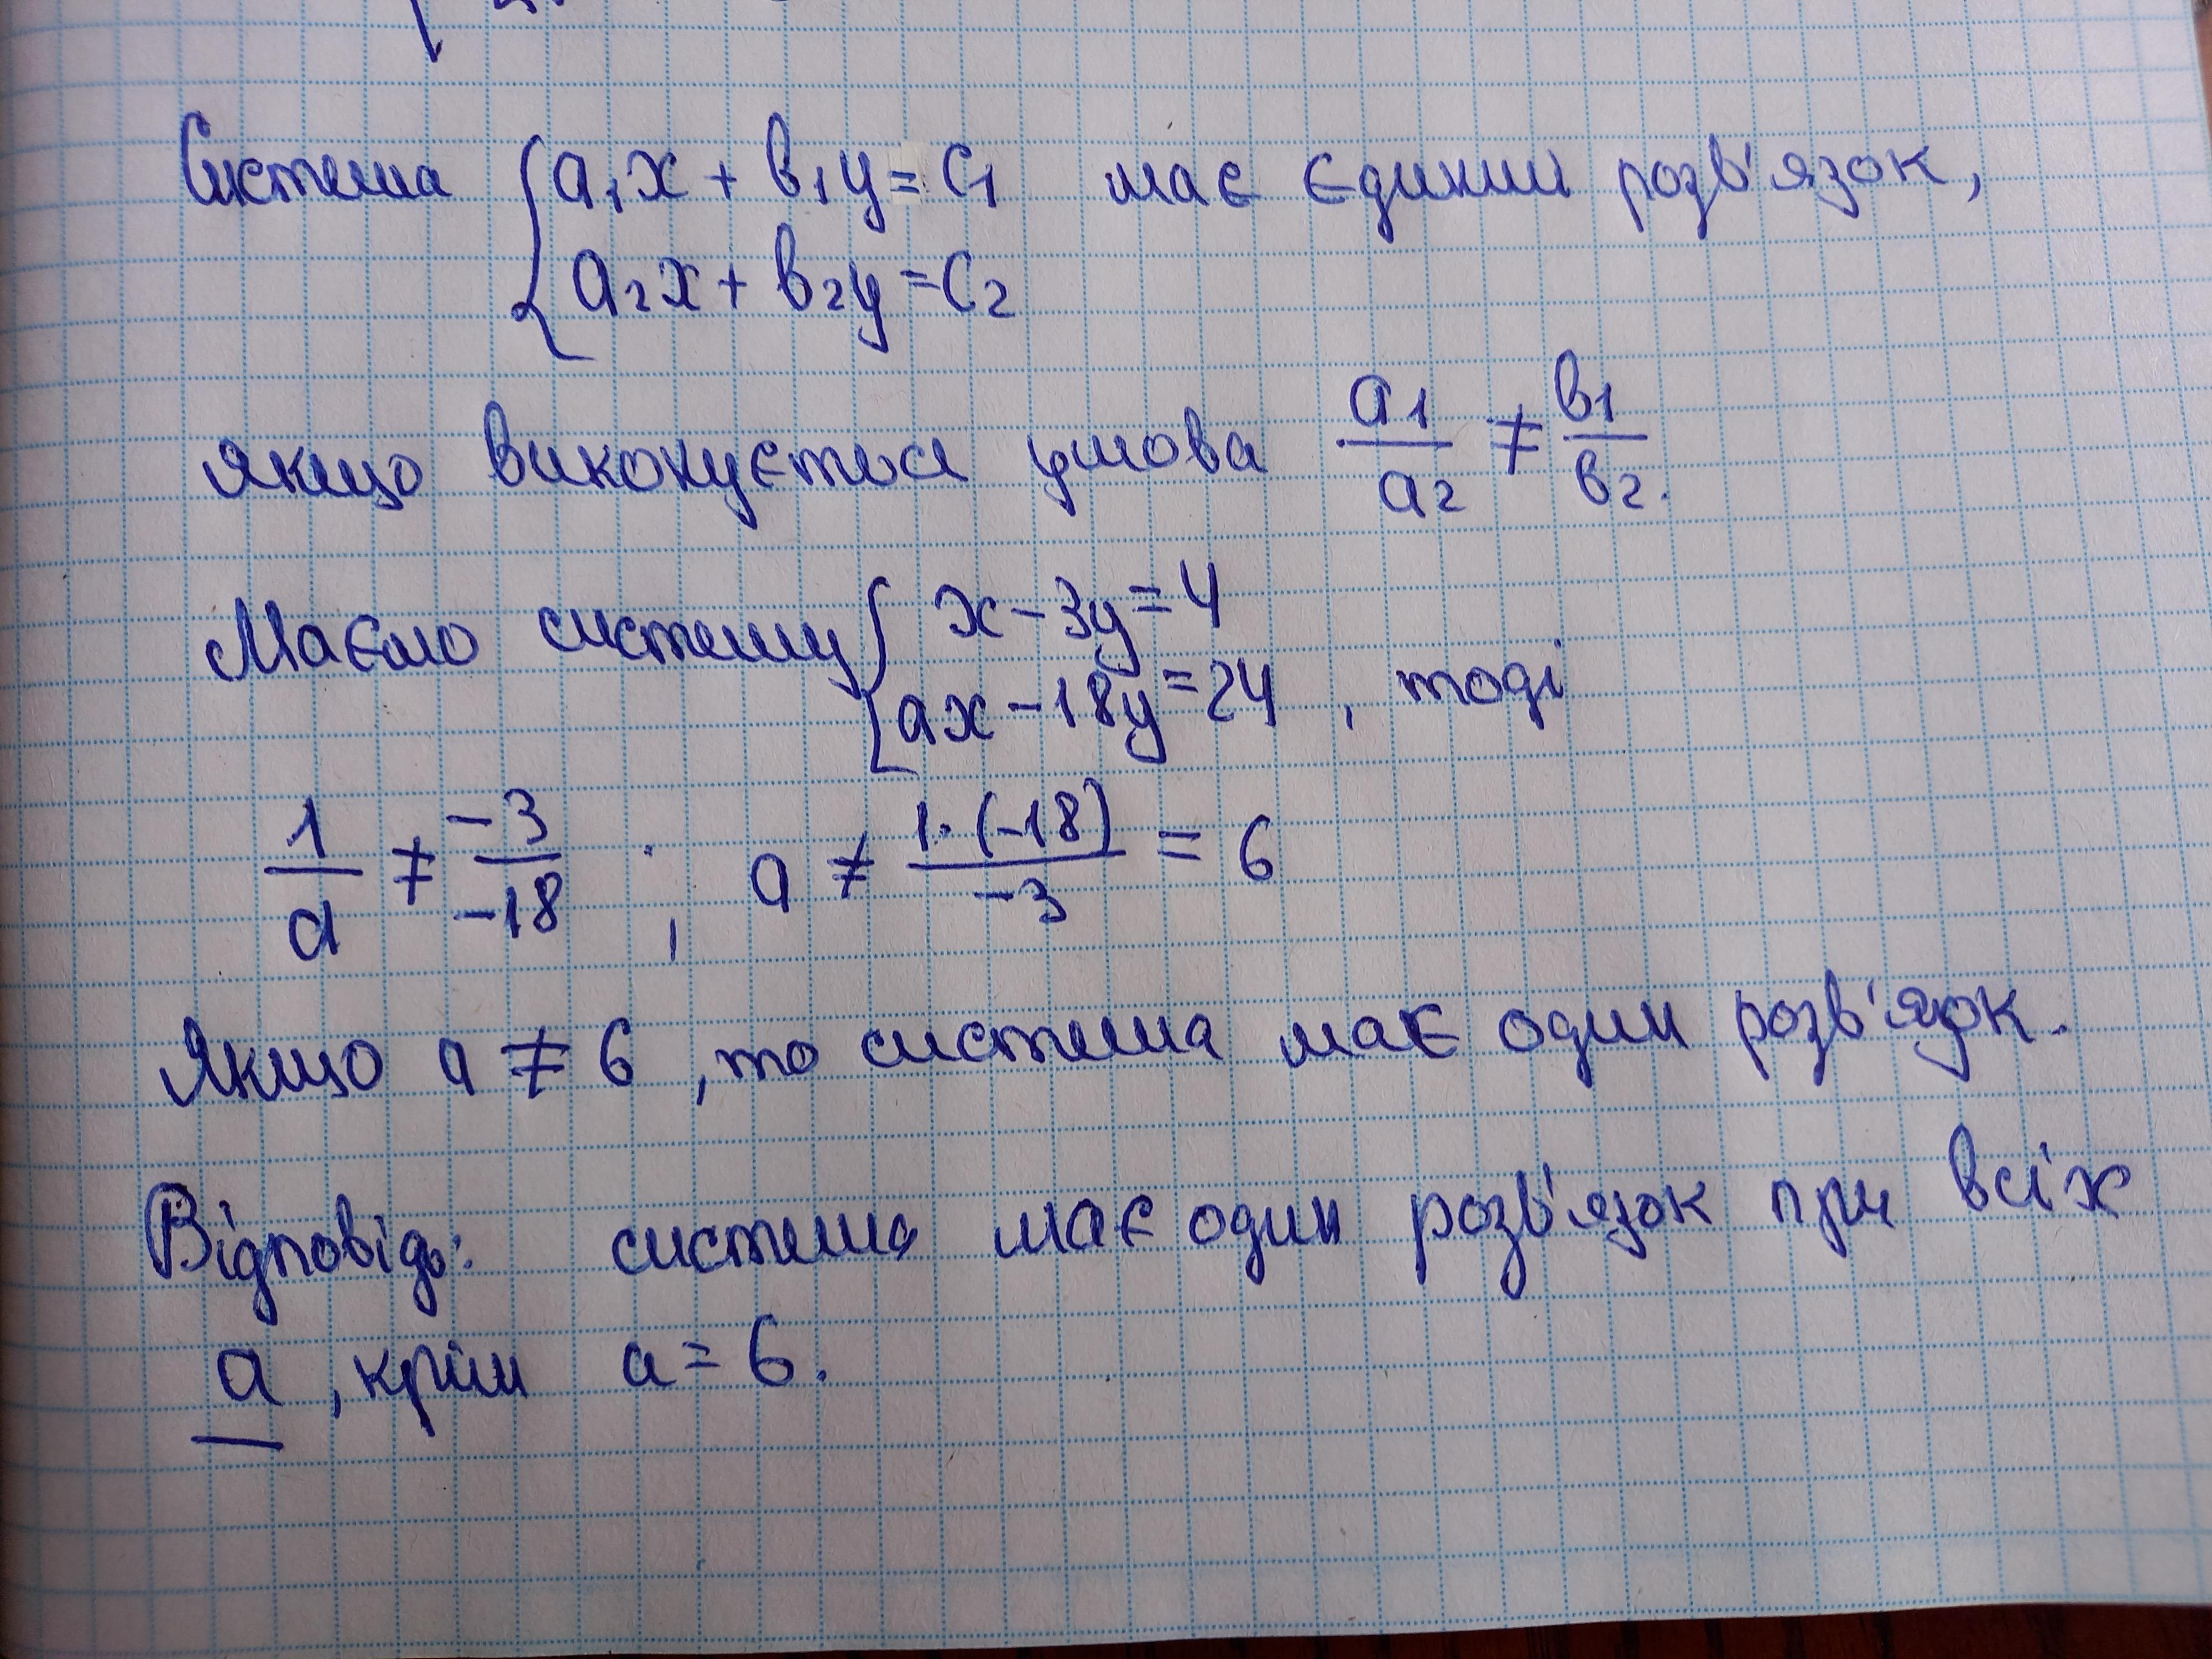 Система { a₁x + b₁y = c₁ має єдиний розв'язок,
a₂x + b₂y = c₂
якщо виконується умова a₁/a₂ ≠ b₁/b₂.
Маємо систему { x − 3y = 4
ax − 18y = 24 , тоді
1/a ≠ −3/−18 ; a ≠ 1·(−18)/−3 = 6
Якщо a ≠ 6, то система має один розв'язок.
Відповідь: система має один розв'язок при всіх
a, крім a = 6.